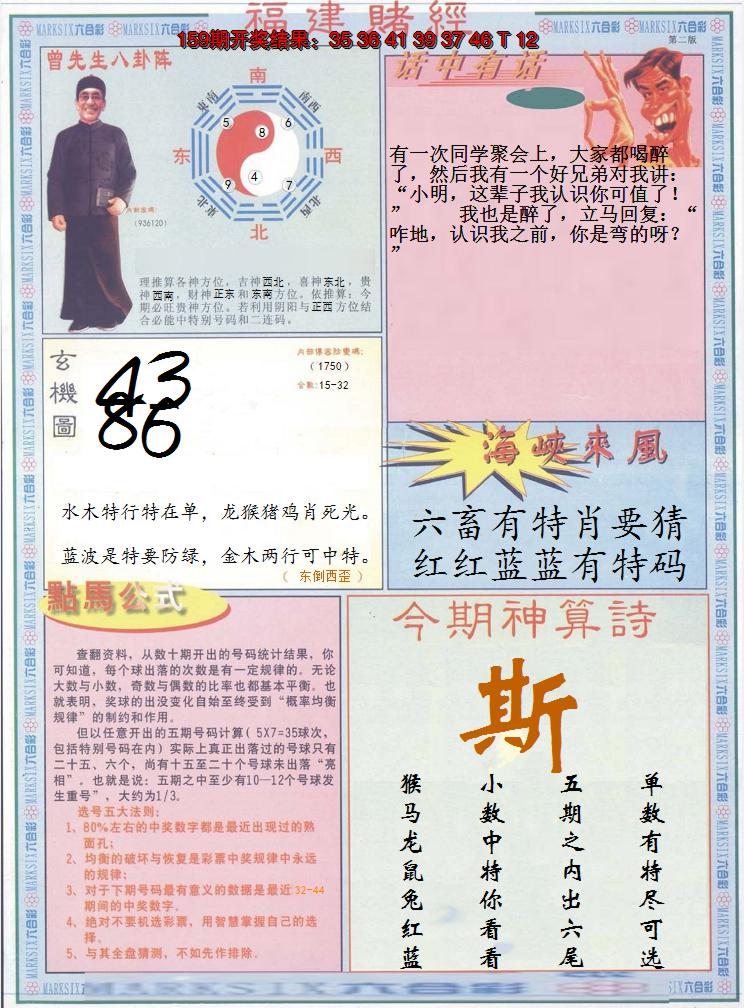 福建賭經
159期开奖结果：35 36 41 39 37 46 T 12
第二版
MARKSIX六合彩
曾先生八卦阵
南
东南
西南
东
西
东北
西北
北
5
8
6
9
4
7
内部密碼:
(936120)
理推算各神方位，吉神西北，喜神东北，贵
神西南，财神正东和东南方位。依推算：今
期必旺贵神方位。若利用阴阳与正西方位结
合必能中特别号码和二连码。
话中有话
有一次同学聚会上，大家都喝醉
了，然后我有一个好兄弟对我讲：
“小明，这辈子我认识你可值了！
” 我也是醉了，立马回复：“
咋地，认识我之前，你是弯的呀？
”
玄機圖
43
86
（1750）
合数:15-32
水木特行特在单，龙猴猪鸡肖死光。
蓝波是特要防绿，金木两行可中特。
（ 东倒西歪 ）
海峽來風
六畜有特肖要猜
红红蓝蓝有特码
點馬公式
查翻资料，从数十期开出的号码统计结果，你
可知道，每个球出落的次数是有一定规律的。无论
大数与小数，奇数与偶数的比率也都基本平衡。也
就表明，奖球的出没变化自始至终受到“概率均衡
规律”的制约和作用。
但以任意开出的五期号码计算( 5X7=35球次，
包括特别号码在内) 实际上真正出落过的号球只有
二十五、六个，尚有十五至二十个号球未出落“亮
相”。也就是说：五期之中至少有10—12个号球发
生重号”，大约为1/3。
选号五大法则：
1、80%左右的中奖数字都是最近出现过的熟
面孔；
2、均衡的破坏与恢复是彩票中奖规律中永远
的规律；
3、对于下期号码最有意义的数据是最近32-44
期间的中奖数字。
4、绝对不要机选彩票，用智慧掌握自己的选
择。
5、与其全盘猜测，不如先作排除。
今期神算詩
斯
单数有特尽可选
五期之内出六尾
小数中特你看看
猴马龙鼠兔红蓝